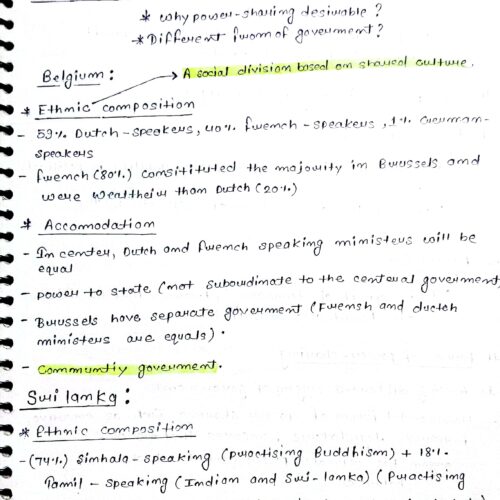 * why power-sharing desirable ?
* Different from of goverment?
Belgium :
A social division based on shared culture.
* Ethnic composition
- 59%. Dutch-speakers, 40%. french-speakers, 1%. German-
speakers
- french (80%.) consitituted the majority in Brussels and
were wealtheir than Dutch (20%.)
* Accomodation
- In center, Dutch and french speaking ministers will be
equal
- power to state (not subordinate to the centeral goverment
- Brussels have separate goverment (french and ductch
ministers are equals).
- Communtiy goverment.
Sri lanka :
* Ethnic composition
- (74%.) Sinhala-speaking (practising Buddhism) + 18%.
Tamil - speaking (Indian and Sri-lanka) (Practising